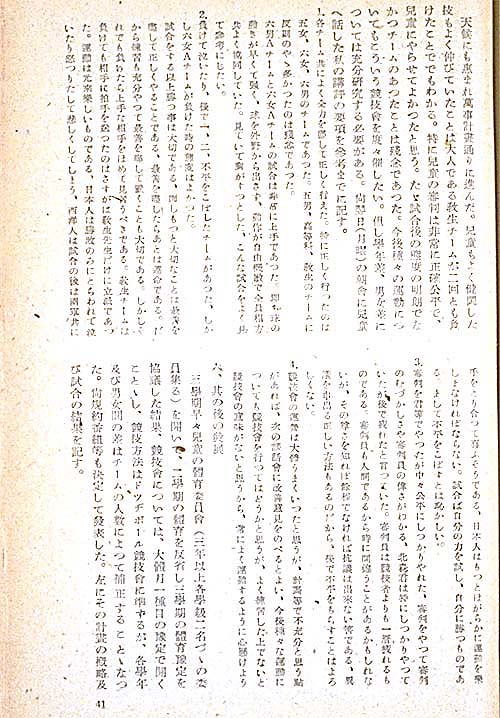 天候にも惠まれ萬事計畫通りに進んだ。兒童もよく健鬪した
技もよく伸びていたことは大人である敎生チームが二回とも負
けたことでもわかる。特に兒童の審判は非常に正確公平で、
兒童にやらせてよかつたと思う。たゞ試合後の態度の明朗でな
かつチームのあつたことは殘念であつた。今後種々の運動につ
いてもこういう競技會を度々催したい。但し學年差、男女差に
ついては充分硏究する必要がある。尙翌日(月曜)の朝會に兒童
へ話した私の講評の要項を參考までに記す。
1.各チーム共によく全力を盡して正しく行えた。特に正しく行つたのは
五女、六女、六男のチームであつた。五男、高等科、敎生のチームに
反則のやゝ多かつたのは殘念であつた。
六男Aチームと六女Aチームの試合は非常に上手であつた。即ち球の
動きが早くて强く、球を外野から出さず、動作が自由機敏で全員相方
共よく協同していた。見ていて胸がすつとした、こんな試合をよく
て參考にしたい。
2.負けて泣いたり、後で一、二、不平をこぼしたチームがあつた、しか
し六女Aチームが負けた時の態度はよかつた。
試合をする以上勝つ事は大切である、而しもつと大切なことは最善を
盡して正しくやることである、最善を盡したらあとは運命である。だ
から練習も充分やつて最善を盡して戰くことも大切である。しかしそ
れでも負けたら上手な相手をほめて見習うべきである。敎生チームは
負けても相手に拍手を送つたのはさすがは敎生先生だけに立派であつ
た。運動は元來樂しいものである、日本人は勝敗のみにとらわれて泣
いたり怒つりたして悲しくしてしまう、西洋人は試合の後は兩軍共に
手をとり合つて喜ぶそうである、日本人はもつとほがらかに運動を樂
しまなければならない。試合は自分の力を試し、自分に勝つものであ
る、まして不平をこぼすとは恥かしい。
3.審判を君等でやつたが中々公平にしつかりやれた、審判をやつて審判
のむづかしさや審判員の偉さがわかる、北森君は笛につかりやつて
いたが後で疲れたと言つていた。審判員は競技者よりも一層疲れるも
のである、審判員も人間であるから時に間違うことがあるかもしれな
いが、その尊さを知れば餘程でなければ抗議は出來ない筈である、異
議を申出る正しい方法もあるのだから、後で不平をもらすことはよろ
しくない。
4.競技會の運營は大體うまくいつたと思うが、計畫等で不充分と思う點
があれば、次の談話會に改善意見をのべるとよい、今後種々な運動に
ついても競技會を行つてはどうかと思うが、よく練習した上でないと
競技會の意味がないと思うから、常によく運動するように心懸けよう
六、其の後の發展
三學期早々兒童の體育委員會(三年以上各學級二名づゝの委
員集る)を開いて、二學期の體育を反省し三學期の體育豫定を
協議した結果、競技會については、大體月一種目の豫定で開く
ことゝし、競技方法はドッチボール競技會に準ずるが、各學年
及び男女間の差はチームの人數によつて補正することゝなつ
た。尙規約番組等も決定して發表した。左にその計畫の槪略及
び試合の結果を記す。
41